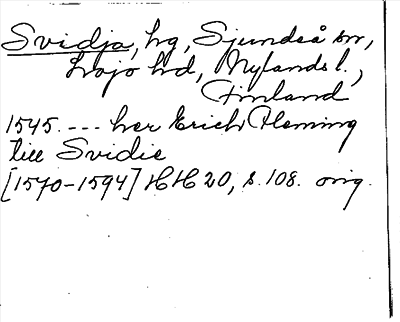 Svidja, hg, Sjundeå sn,
Lojo hd, Nylands l.,
Finland
1545. --- her Erich Fleming
till Svidie
[1570-1594] HH 20, s. 108. orig.